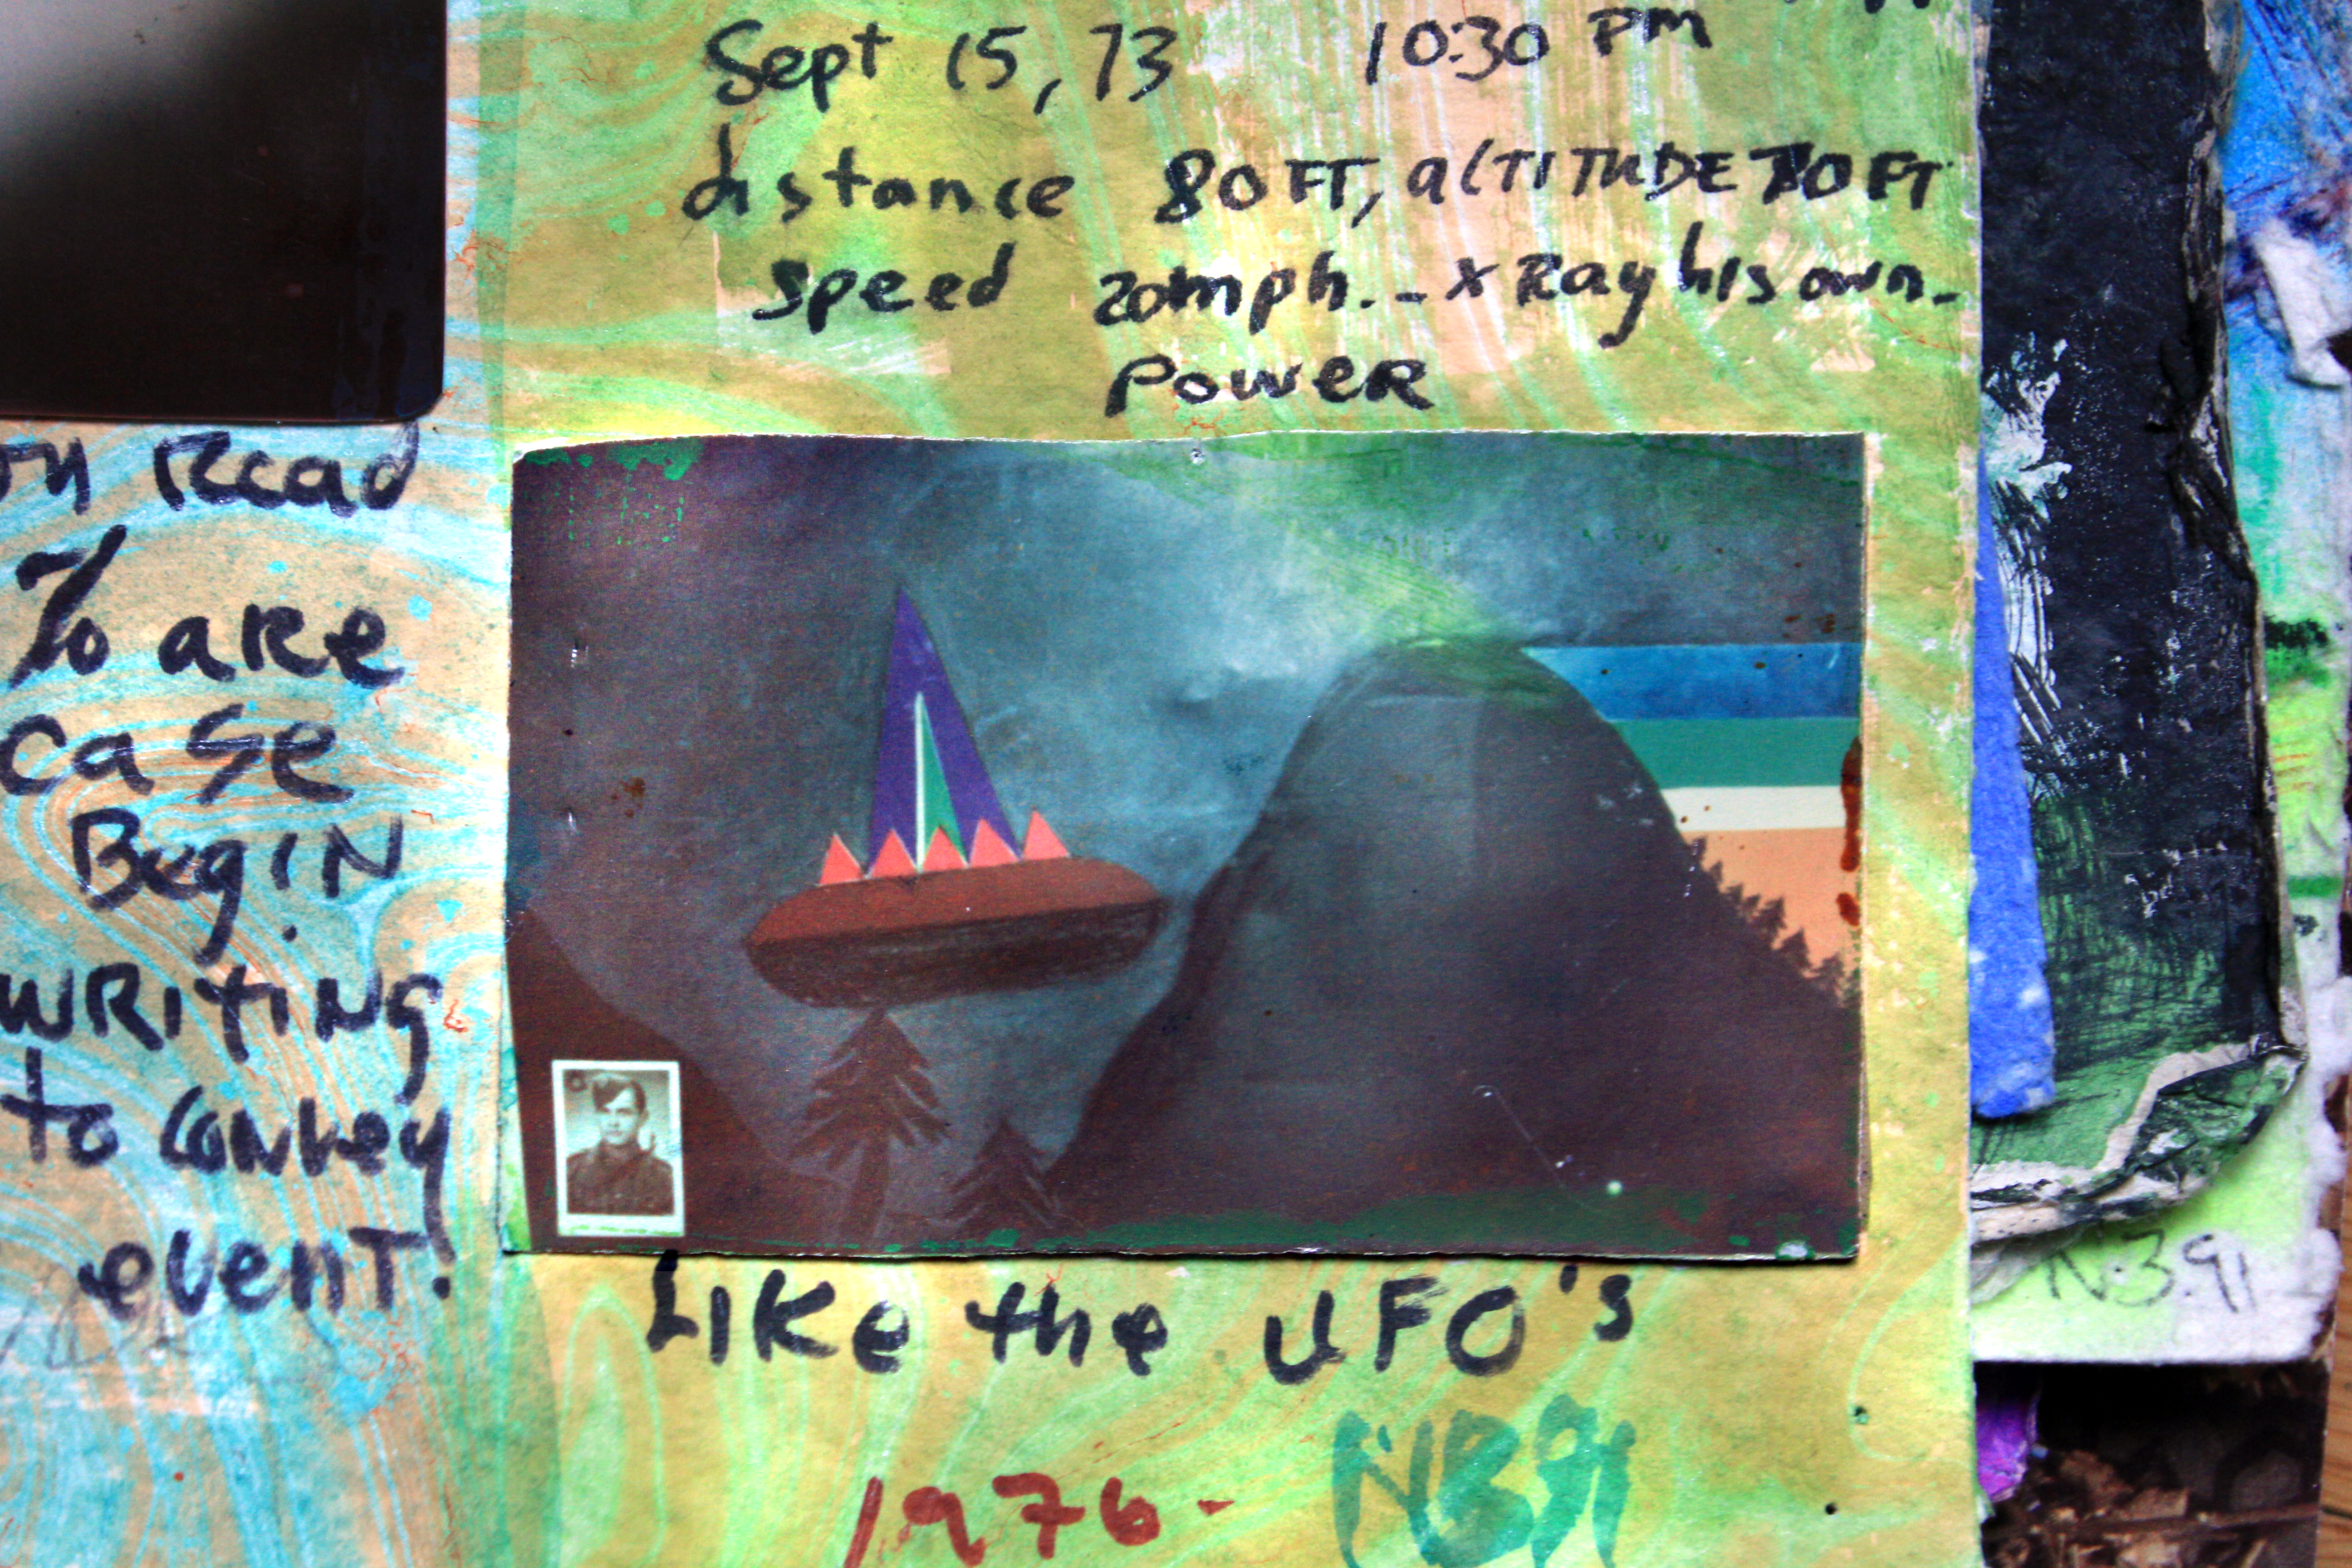 Sept 15, 73 10:30 PM
distance 80 FT, altitude FT
speed 20mph. - x Ray his own -
Power
on Read
To are
case
Begin
writing
to convey
event!
Like the UFO's
1976 - NB91
NB.91